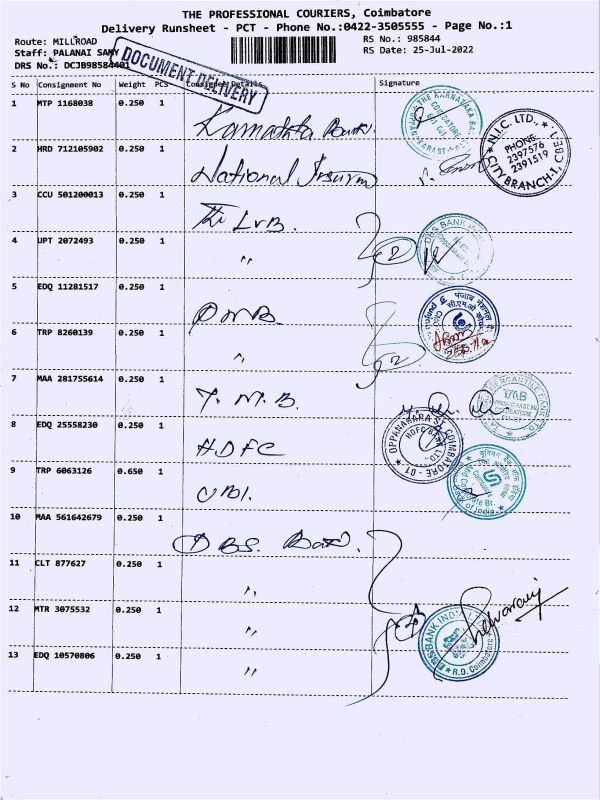 THE PROFESSIONAL COURIERS, Coimbatore
Delivery Runsheet - PCT - Phone No.:0422-3505555 - Page No.:1
Route: MILLROAD
RS No.: 985844
Staff: PALANAI SAMY
RS Date: 25-Jul-2022
DRS No.: DCJB98584401
DOCUMENT DELIVERY
S No Consignment No Weight PCS Consignee Details Signature
1 MTP 1168038 0.250 1 Karnataka Bank
2 HRD 712105902 0.250 1 National Insurn
3 CCU 501200013 0.250 1 The LVB.
4 UPT 2072493 0.250 1 "
5 EDQ 11281517 0.250 1 PNB.
6 TRP 8260139 0.250 1 "
7 MAA 281755614 0.250 1 T. M. B.
8 EDQ 25558230 0.250 1 HDFC
9 TRP 6063126 0.650 1 UBI.
10 MAA 561642679 0.250 1 DBS. Bank.
11 CLT 877627 0.250 1 "
12 MTR 3075532 0.250 1 "
13 EDQ 10570806 0.250 1 "
THE KARNATAKA BA
N.I.C. LTD.,
PHONE:
2397576
2391519
CITY BRANCH-1, CBE
DBS BANK IND
पंजाब नैशनल
MERCANTILE BANK
TMB
OPPANAKARA ST. COIMBATORE - 01
HDFC BANK LTD.
यूनियन बैंक ऑफ इंडिया
DBS BANK INDIA L
R.O. Coimbatore